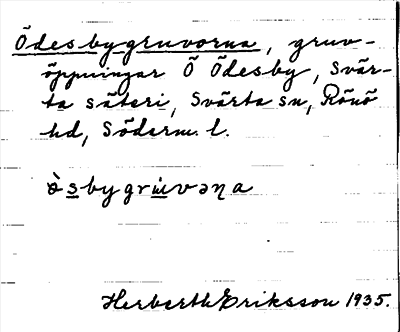 Ödesbygruvorna, gruv-
öppningar Ö Ödesby, Svär-
ta säteri, Svärta sn, Rönö
hd, Söderm. l.
ὸsbygru̇vəɳa
Herberth Eriksson 1935.